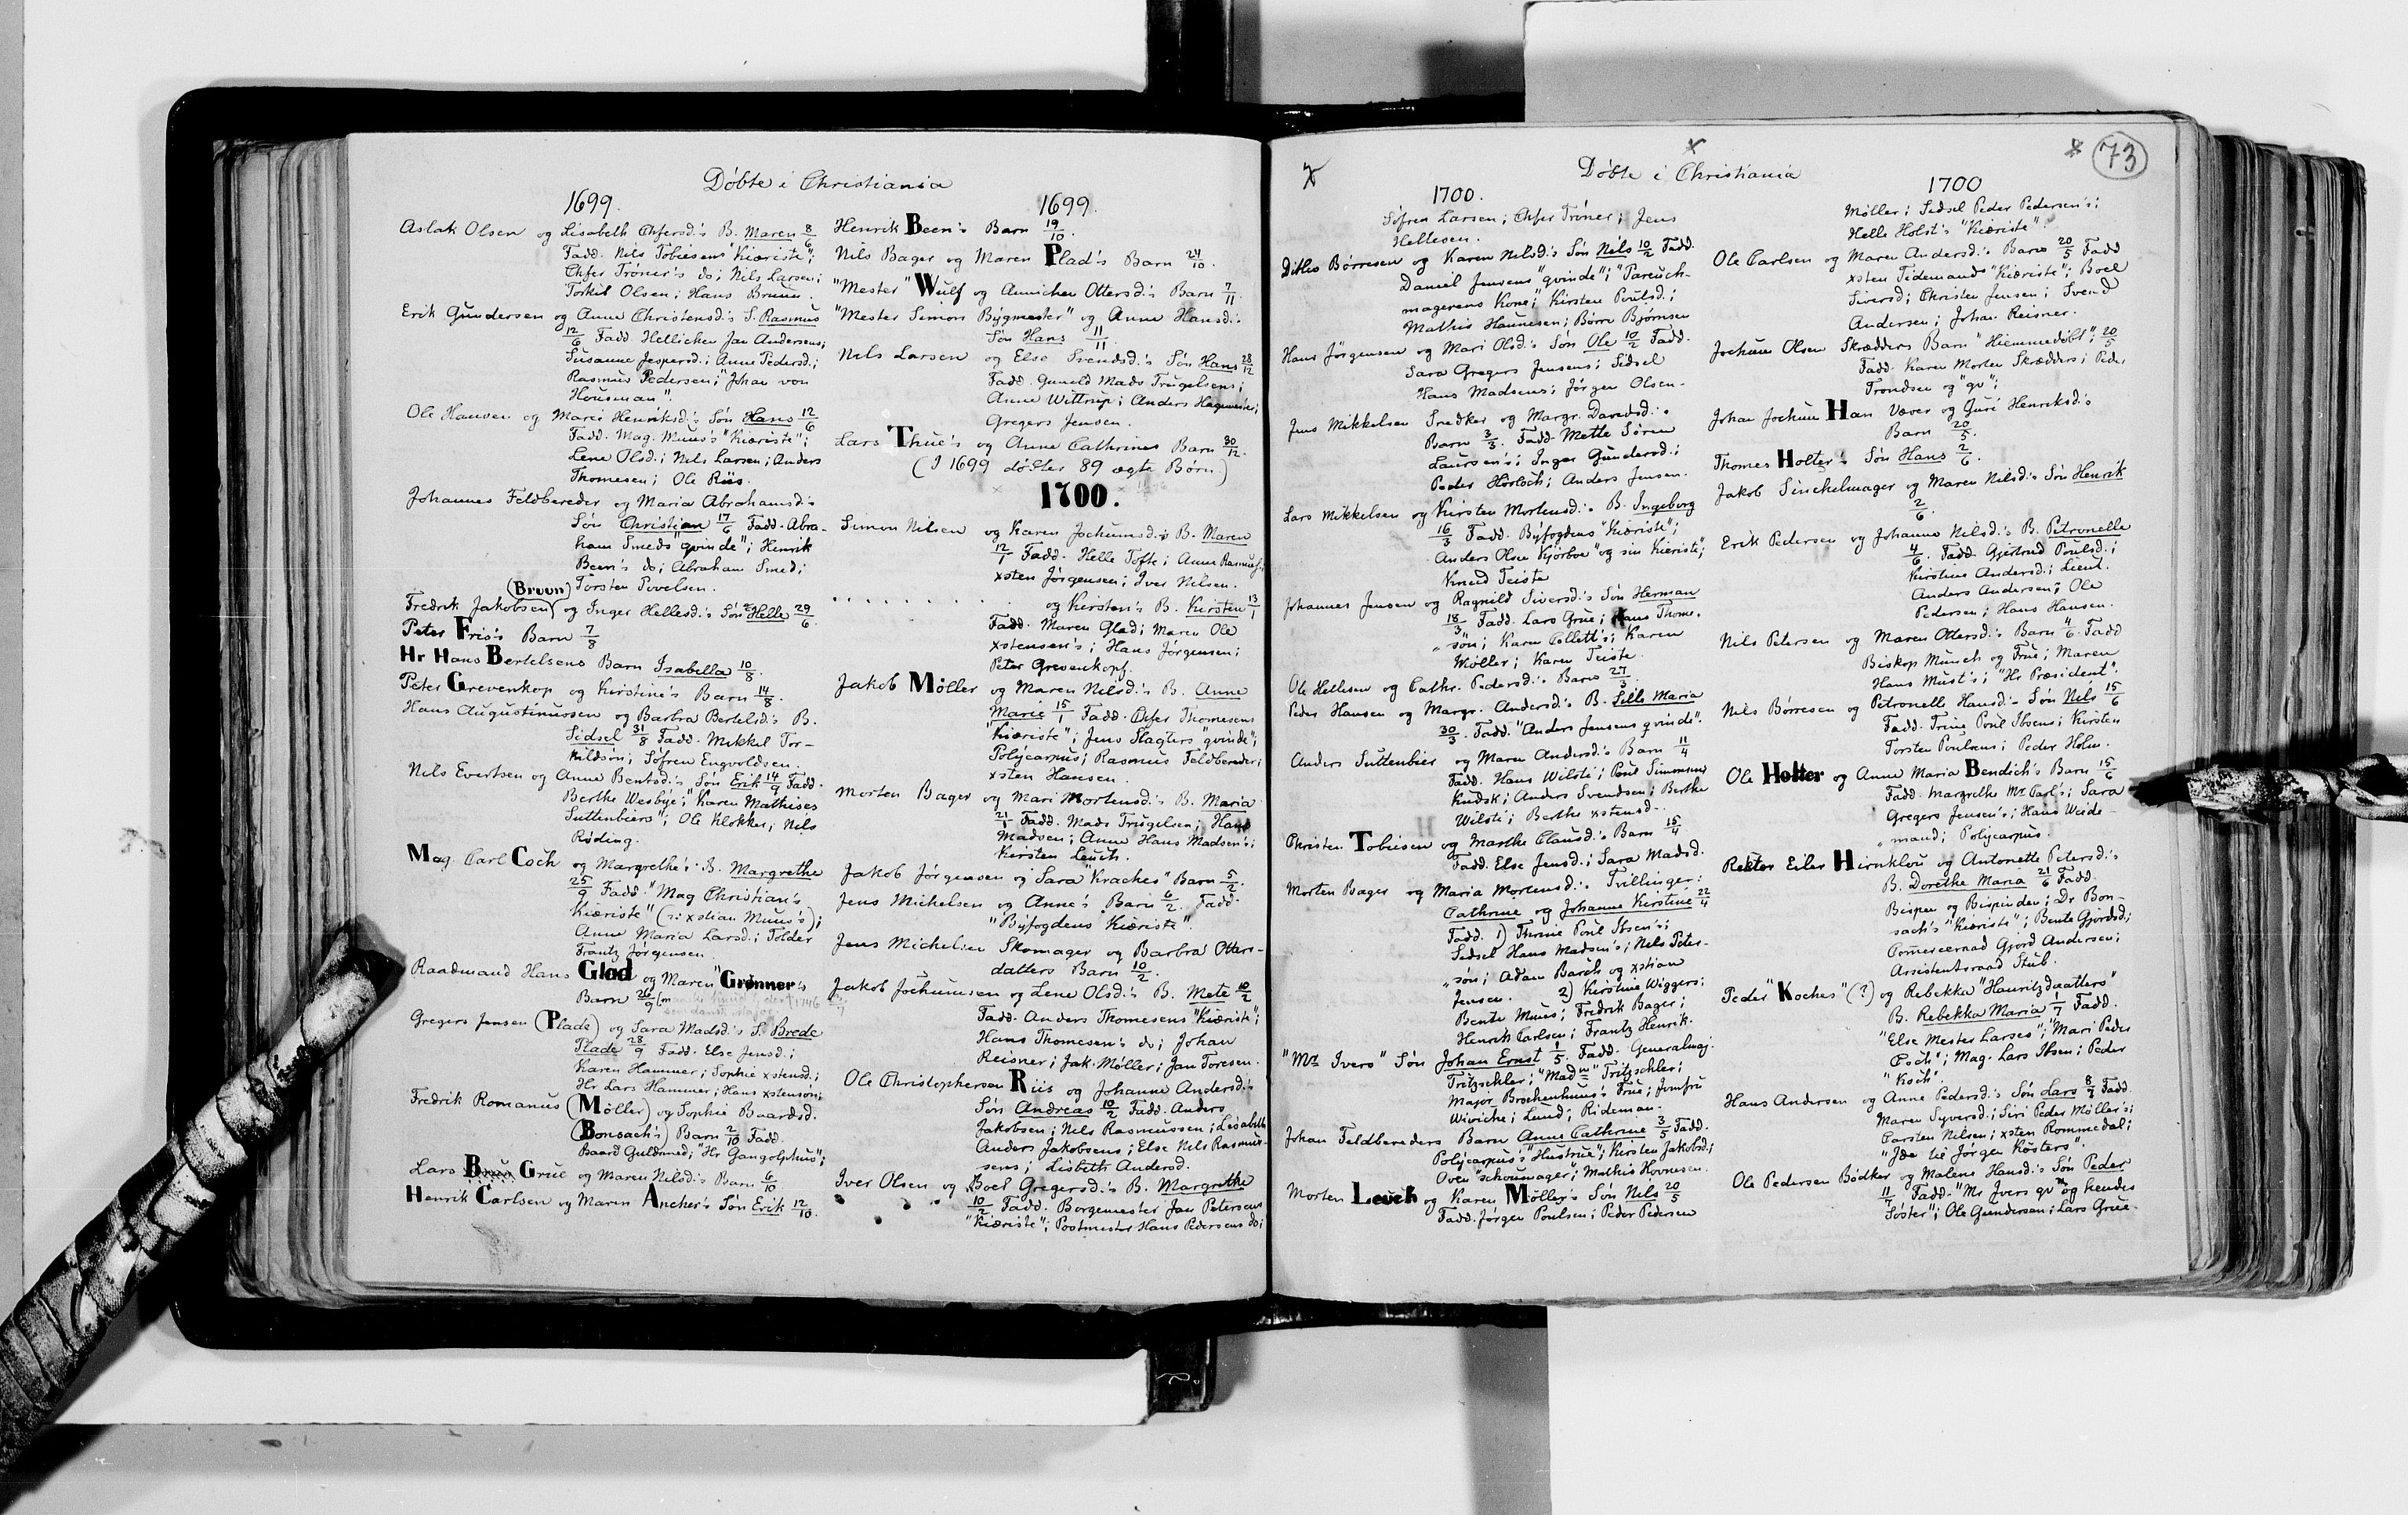 Döbte i Christiania
1699.
Aslak Olsen og Lisabeth Chfersd.'s B. Maren 8/6
Fadd. Nils Tobiesens "Kiæriste";
Chfer Tröner's do; Nils Larsen;
Torkil Olsen; Hans Bruun.
Erik Gundersen og Anne Christensd.'s S. Rasmus
12/6 Fadd Hellichen Jan Andersens;
Susanne Jespersd.; Anne Pedersd.;
Rasmus Pedersen; "Johan von
Housman".
Ole Hansen og Maren Henriksd.'s Sön Hans 12/6
Fadd. Mag. Muus's "Kiæriste";
Lene Olsd.; Nils Larsen; Anders
Thomesen; Ole Riis.
Johannes Feldbereder og Maria Abrahamsd.'s
Sön Christian 17/6 Fadd. Abra-
ham Smeds "qvinde"; Henrik
Been's do; Abraham Smed;
Torsten Povelsen.
Fredrik Jakobsen (Bruun) og Inger Hellesd.'s Sön Helle 29/6.
Peter Friis's Barn 7/8
Hr Hans Bertelsens Barn Isabella 10/8.
Peter Grevenkop og Kirstine's Barn 14/8.
Hans Augustinussen og Barbra Bertelsd.'s B.
Sidsel 31/8 Fadd. Mikkel Tor-
kildsön; Söfren Engvoldsen.
Nils Evertsen og Anne Bentsd.'s Sön Erik 14/9 Fadd.
Berthe Wesbye; "Karen Mathises
Suttenbiers"; Ole Klokker; Nils
Röding.
Mag. Carl Coch og Margrethe's B. Margrethe
25/9 Fadd. "Mag Christian's
Kiæriste" (ɔ: xstian Muus's);
Anne Maria Larsd.; Tolder
Frantz Jörgensen.
Raadmand Hans Glad og Maren "Grønner's
Barn 26/9
Gregers Jensen (Plade) og Sara Madsd.'s S. Brede
Plade 28/9 Fadd. Else Jensd.;
Karen Hammer; Sophie xstensd.;
Hr Lars Hammer; Hans xstenson;
Fredrik Romanus (Möller) og Sophie Baardsd.
(Bonsach's) Barn 2/10 Fadd.
Baard Guldsmed; "Hr Gangolphus";
Lars Grue og Maren Nilsd.'s Barn 6/10
Henrik Carlsen og Maren Ancher's Sön Erik 12/10.
1699.
Henrik Been's Barn 19/10.
Nils Bager og Maren Plad's Barn 24/10.
"Mester" Wulf og Annichen Ottersd.'s Barn 7/11
"Mester Simon Bygmester" og Anne Hansd.'s
Sön Hans 11/11.
Nils Larsen og Else Svendsd.'s Sön Hans 28/12
Fadd. Gunild Mads Trugelsens;
Anne Wittrup; Anders Hagemeier;
Gregers Jensen.
Lars Thue's og Anne Cathrines Barn 30/12.
(I 1699 döbtes 89 ægte Børn.)
1700.
Simon Nilsen og Karen Jochumsd.'s B. Maren
12/1 Fadd. Helle Tofte; Anne Rasmus's;
xsten Jørgensen; Iver Nilsen.
. . . . . . . . og Kirsten's B. Kirsten 13/1
Fadd. Maren Glad; Maren Ole
xstensen's; Hans Jørgensen;
Peter Grevenkopf.
Jakob Möller og Maren Nilsd.'s B. Anne
Marie 15/1 Fadd. Chfer Thomesens
"Kiæriste"; Jens Slagters "qvinde";
Polycarpus; Rasmus Feldbereder;
xsten Hansen.
Morten Bager og Mari Mortensd.'s B. Maria
21/1 Fadd. Mads Trugelsen; Hans
Madsen; Anne Hans Madsen's;
Kirsten Leuch.
Jakob Jørgensen og "Sara Kraches" Barn 5/2.
Jens Michelsen og Anne's Barn 6/2. Fadd.
"Byfogdens Kiæriste".
Jens Michelsen Skomager og Barbra Otters-
datters Barn 10/2.
Jakob Jochumsen og Lene Olsd.'s B. Mete 10/2
Fadd. Anders Thomesens "Kiæriste";
Hans Thomesen's do; Johan
Reisner; Jak. Möller; Jan Toresen.
Ole Christophersen Riis og Johanne Andersd.'s
Sön Andreas 10/2 Fadd. Anders
Jakobsen; Nils Rasmussen; Lisabeth
Anders Jakobsens; Else Nils Rasmus-
sens; Lisbeth Andersd.
Iver Olsen og Boel Gregersd.'s B. Margrethe
10/2 Fadd. Borgemester Jan Petersens
"Kiæriste"; Postmester Hans Pedersens do;
73
Döbte i Christiania
1700.
Söfren Larsen; Chfer Tröner; Jens
Hellesen.
Ditlev Börresen og Karen Nilsd.'s Sön Nils 10/2 Fadd.
Daniel Jensens "qvinde"; "Pareuch-
magerens Kone; Kirsten Poulsd.;
Mathis Haunesen; Börre Björnsen
Hans Jörgensen og Mari Olsd.'s Sön Ole 10/2 Fadd.
Sara Gregers Jensens; Sidsel
Hans Madsens; Jörgen Olsen.
Jens Mikkelsen Snedker og Margr. Davedsd.'s
Barn 3/3. Fadd. Mette Sören
Laursen's; Inger Gundersd.;
Peder Hörloch; Anders Jensen.
Lars Mikkelsen og Kirsten Mortensd.'s B. Ingeborg
16/3 Fadd. Byfogdens "Kiæriste";
Anders Olsen Kjörboe "og sin Kiæriste";
Knud Teiste
Johannes Jensen og Ragnild Siversd.'s Sön Herman
18/3 Fadd. Lars Grue; Hans Thome-
"sön; Karen Collett's; Karen
Möller; Karen Teiste.
Ole Hellesen og Cathr. Pedersd.'s Barn 27/3
Peder Hansen og Margr. Andersd.'s B. Sille Maria
30/3. Fadd. "Anders Jensens qvinde".
Anders Suttenbier og Maren Andersd.'s Barn 11/4
Fadd. Hans Wilsti; Poul Simonsens
Kudsk; Anders Svendsen; Berthe
Wilsti; Berthe xstensd.
Christen Tobiesen og Marthe Clausd.'s Barn 15/4
Fadd. Else Jensd.; Sara Madsd.
Morten Bager og Maria Mortensd.'s Tvillinger:
Cathrine og Johanne Kirstine 22/4
Fadd. 1) Thrine Poul Ibsen's;
Sidsel Hans Madsen's; Nils Peter-
"sön; Adam Barch og xstian
Jensen. 2) Kirstine Wiggers;
Bente Muus; Fredrik Bager;
Henrik Carlsen; Frantz Henrik.
"Mr Ivers" Sön Johan Ernst 1/5. Fadd. Generalmaj.
Tritzschler; "Madm" Tritzschler;
Major Brochenhuus's Frue; Jomfru
Wiviche; Lund; Rideman.
Johan Feldbereders Barn Anne Cathrine 3/5 Fadd.
Polycarpus's "Hustrue"; Kirsten Jakobsd.;
Oven "schoumager"; Mathis Hovnesen.
Morten Leuch og Karen Möller's Sön Nils 20/5
Fadd. Jörgen Poulsen; Peder Pedersen
1700
Möller; Sidsel Peder Pedersen's;
Helle Holst's "Kiæriste".
Ole Carlsen og Maren Andersd.'s Barn 20/5 Fadd
xsten Tidemands "Kiæriste"; Boel
Siversd; Christen Jensen; Svend
Andersen; Johan Reisner.
Jochum Olsen Skrædders Barn "Hiemmedöbt"; 20/5
Fadd. Karen Morten Skrædders; Peder
Trondsen og "qv";
Johan Jochum Han Væver og Guri Henriksd.'s
Barn 20/5.
Thomes Holter's Sön Hans 2/6.
Jakob Sinckelmager og Maren Nilsd.'s Sön Henrik
2/6.
Erik Pedersen og Johanne Nilsd.'s B. Petronelle
4/6. Fadd. Gjertrud Poulsd.;
Kirstine Andersd.; Lieut.
Anders Andersen; Ole
Pedersen; Hans Hansen.
Nils Petersen og Maren Ottersd.'s Barn 4/6. Fadd
Biskop Munch og Frue; Maren
Hans Must's; "Hr Præsident".
Nils Börresen og Petronelle Hansd.'s Sön Nils 15/6
Fadd. Trine Poul Ibsens; Kirsten
Torsten Poulsens; Peder Holm.
Ole Holter og Anne Maria Bendich's Barn 15/6
Fadd. Margrethe Mr Carl's; Sara
Gregers Jensen's; Hans Weide-
"mand; Polycarpus.
Rektor Eiler Hirnklou og Antonette Petersd.'s
B. Dorethe Maria 21/6 Fadd.
Bispen og Bispinden; Dr Bon-
sach's "Kiæriste"; Bente Gjordsd.;
Com̄erceraad Gjord Andersen;
Assistentsraad Stub.
Peder "Koches" (?) og Rebekka "Hauritzdaatters"
B. Rebekka Maria 1/7 Fadd.
"Else Mester Larses"; "Mari Peder
Coch"; Mag. Lars Ibsen; Peder
"Koch".
Hans Andersen og Anne Pedersd.'s Sön Lars 8/7 Fadd.
Maren Syversd.; Siri Peder Möller's;
Carsten Nilsen; xsten Rommedal;
"Ide til Jörgen Kösters".
Ole Pedersen Bödker og Malene Hansd.'s Sön Peder
11/7 Fadd. "Mr Ivers qv og hendes
Söster"; Ole Gundersen; Lars Grue.